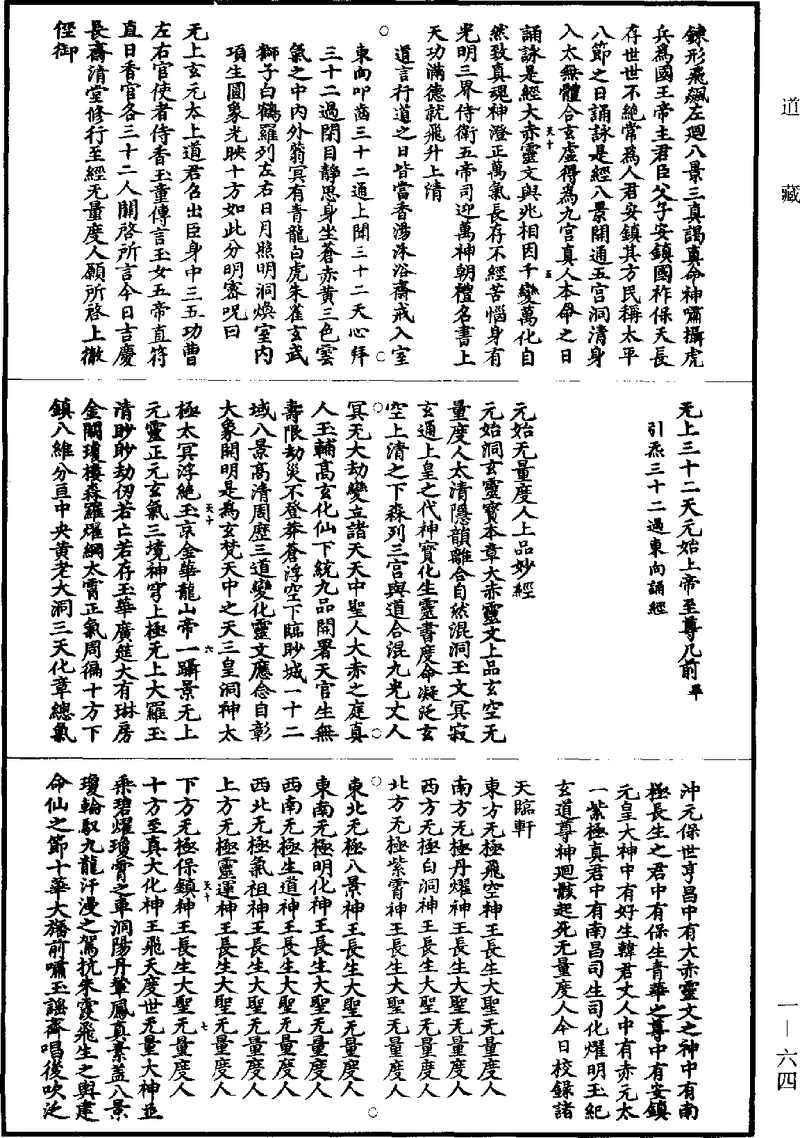 道藏
鍊形飛飊左迴八景三真謁真命神嘯攝虎
兵為國王帝主君臣父子安鎮國祚保天長
存世世不絕常為人君安鎮其方民稱太平
八節之日誦詠是經八景開通五宮洞清身
入太無體合玄虛得為九宮真人本命之日
誦詠是經大赤靈文與兆相因千變萬化自
天十 五
然致真魂神澄正萬氣長存不經苦惱身有
光明三界侍衛五帝司迎萬神朝禮名書上
天功滿德就飛升上清
道言行道之日皆當香湯沐浴齋戒入室
東向叩齒三十二通上聞三十二天心拜
三十二過閉目靜思身坐蒼赤黃三色雲
氣之中內外蓊冥有青龍白虎朱雀玄武
獅子白鶴羅列左右日月照明洞煥室內
項生圓象光映十方如此分明密呪曰
无上玄元太上道君召出臣身中三五功曹
左右官使者侍香玉童傳言玉女五帝直符
直日香官各三十二人關啓所言今日吉慶
長齋清堂修行至經无量度人願所啓上徹
徑御
无上三十二天元始上帝至尊几前平
引炁三十二過東向誦經
元始无量度人上品妙經
元始洞玄靈寶本章大赤靈文上品玄空无
量度人太清隱韻離合自然混洞玉文冥寂
玄通上皇之代神寶化生靈書度命凝迮玄
空上清之下森列三宮與道合混九光丈人
冥无大劫變立諸天天中聖人大赤之庭真
人玉輔高玄化仙下統九品開署天官生無
壽限劫災不登莽蒼浮空下臨眇城一十二
域八景高清周歷三道變化靈文應念自彰
大象開明是為玄梵天中之天三皇洞神太
天十 六
極太冥浮絕玉京金華龍山帝一躡景无上
元靈正元玄氣三境神穹上極元上大羅玉
清眇眇劫仞若亡若存玉華廣筵大有琳房
金闕瓊樓森羅燿綱太霄正氣周徧十方下
鎮八維分亘中央黃老大洞三天化章總氣
沖元保世亨昌中有大赤靈文之神中有南
極長生之君中有保生青華之尊中有安鎮
元皇大神中有好生韓君丈人中有赤元太
一紫極真君中有南昌司生司化燿明玉紀
玄道尊神迴骸起死无量度人今日校錄諸
天臨軒
東方无極飛空神王長生大聖无量度人
南方无極丹燿神王長生大聖无量度人
西方无極白洞神王長生大聖无量度人
北方无極紫霄神王長生大聖无量度人
東北无極八景神王長生大聖无量度人
東南无極明化神王長生大聖无量度人
西南无極生道神王長生大聖无量度人
西北无極氣祖神王長生大聖无量度人
上方无極靈運神王長生大聖无量度人
天十 七
下方无極保鎮神王長生大聖无量度人
十方至真大化神王飛天度世无量大神並
乘碧燿瓊霄之車洞陽丹輦鳳真素蓋八景
瓊輪馭九龍汗漫之駕抗朱霞飛生之輿建
命仙之節十華大旛前嘯玉謠齊唱後吹泛
一—六四